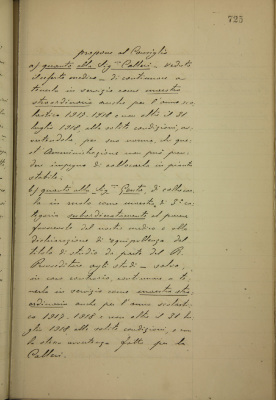 723
propone al Consiglio
a) quanto alla Sig.na Calleri - veduto
il referto medico - di continuare a
tenerla in servizio come maestra
straordinaria anche per l'anno sco
lastico 1917-1918 e non oltre il 31
luglio 1918, alle solite condizioni, av
vertendola, per sua norma, che que
st'Amministrazione non può pren
dere impegno di collocarla in pianta
stabile.
b) quanto alla Sig.na Conti, di colloca
la in ruolo come maestra di 3a ca
tegoria subordinatamente al parere
favorevole del medico e alla
dichiarazione di equipollenza del
titolo di studio da parte del R.
Provveditore agli studi - salvo,
in caso contrario, continuare a te
nerla in servizio come maestra stra
ordinaria anche per l'anno scolasti
co 1917-1918 e non oltre il 31 lu
glio 1918 alle solite condizioni, e con
la stessa avvertenza fatta per la
Calleri.